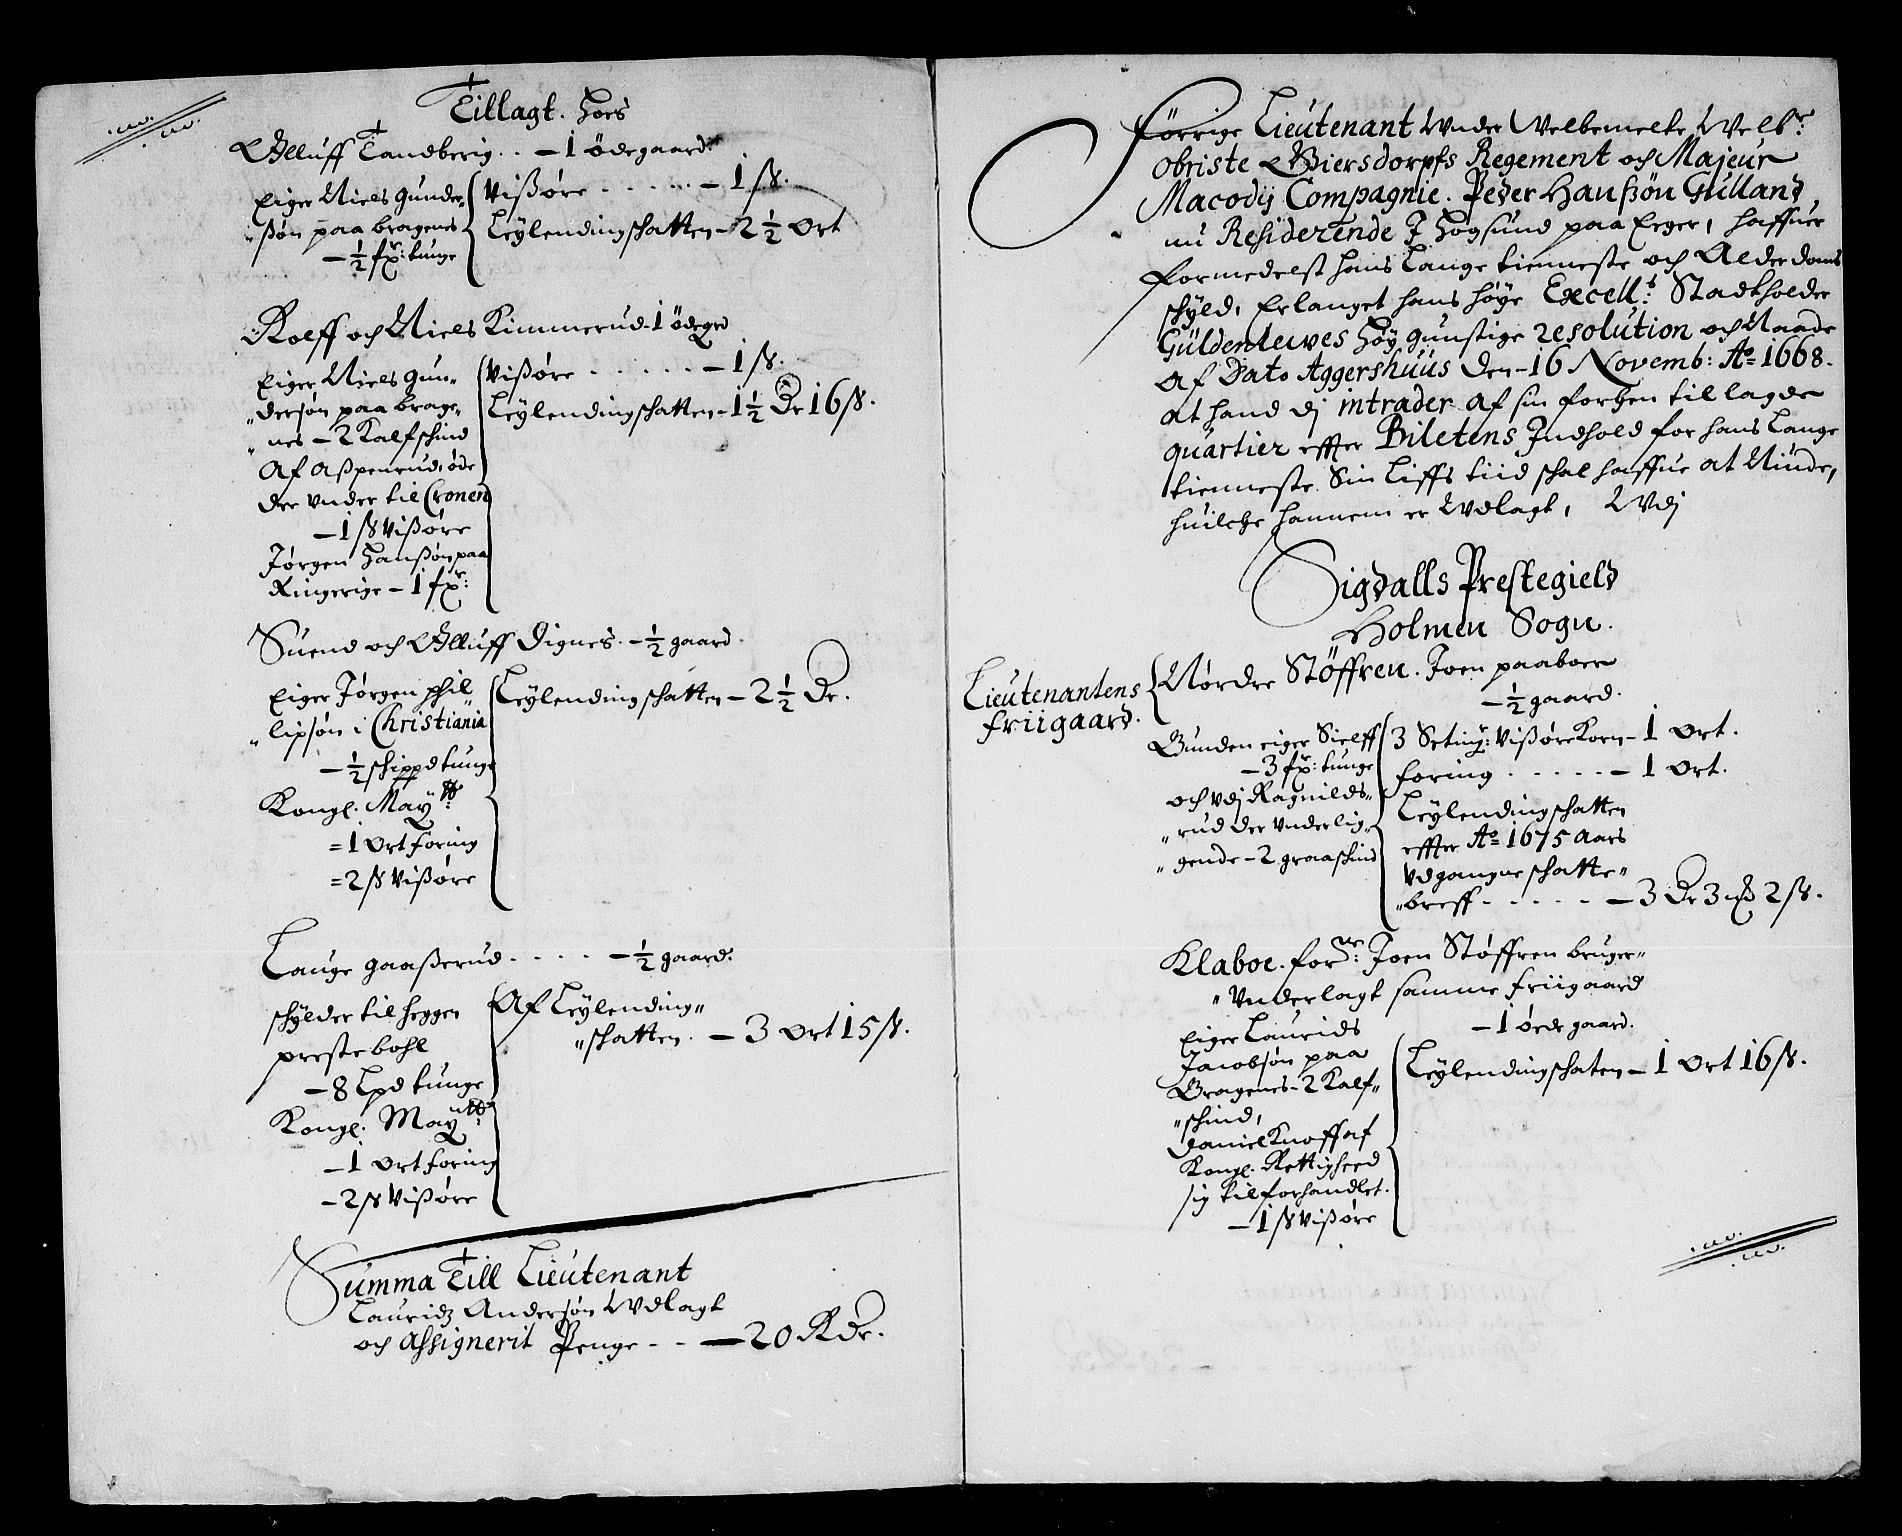 Tillagt. hoes
Olluff Tandberig . . – 1 ødegaard
Eiger Niels Gunder„
„ßøn paa bragenes
– ½ fxr: tunge
Vißøre . . . . . . – 1 ß.
Leylendingschatten – 2 ½ ort
Roeff och Niels Kimmerud – 1 ødegrd
Eiger Niels Gun„
„dersøn paa brage„
„nes – 2 Kalfschind
Af Aßpenrud, øde
der under til Cronen
– 1 ß Vißøre
Jørgen Hanßøn paa
Ringerige – 1 fxr:
Vißøre . . . . . . – 1 ß.
Leylendingschatten – 1 ½ Dr 16 ß.
Suend och Olluff Dignes. – ½ gaard.
Eiger Jørgen phil„
„lipsøn i Christiania
– ½ schippd tunge
Kongl. Maytt:
= 1 ort foring
= 2 ß Vißøre
Leylendingschatten – 2 ½ Dr.
Lauge gaaßerud . . . . – ½ gaard.
schylder til heggen
prestebohl
– 8 Lpd tunge
Kongl. Maytt:
– 1 ort foring
– 2 ß Vißøre
Af Leylending„
„schatten . – 3 ort 15 ß.
Summa Till Lieutenant
Lauridz Andersøn Udlagt
och Assignerit Penge . . – 20 Rdr.
Førrige Lieutenant Under Welbemelte Welbr:
Obriste Biersdorpfs Regement och Majeur
Macodij Compagnie. Peder Hanßøn Gulland
nu Residerende J Hogsund paa Eeger, haffuer
formedelst hans lange tienneste och Alderdoms
schyld, Erlanget hans høye Excells: Stadtholder
Güldenlewes høy gunstige resolution och Naade
af Dato Aggershuus Den – 16 Novemb: Ao 1668.
at hand dj intrader af sin forhen tillagde
quartier effter Biletens Jndhold for hans lange
tienneste Sin liffs tiid schal haffue at Niude,
huilche hannem er Udlagt, Udj
Sigdalls Prestegield
Holmen Sogn.
Lieutenantens
friigaard.
Nørdre Støffren. Joen paaboer
– ½ gaard.
Bunden eiger Sielff
– 3 fxr: tunge
och udj Ragnilds„
„rud der underlig„
„gende – 2 graaschind
3 Seting: Vißøre Korn – 1 ort.
foring . . . . . – 1 ort.
Leylendingschatten
effter Ao 1675 Aars
Udgangne schatte„
„breff . . . . . – 3 Dr 3 mk 2 ß.
Klaboe. forne: Joen Støffren bruger„
„Underlagt samme friigaard
– 1 øede gaard.
Eiger Laurids
Jacobsøn paa
Bragenes – 2 Kalf„
„schind,
Daniel Knoff af
Kongl. Rettigheed
sig tilforhandlet.
– 1 ß Vißøre
Leylendingschaten – 1 ort 16 ß.